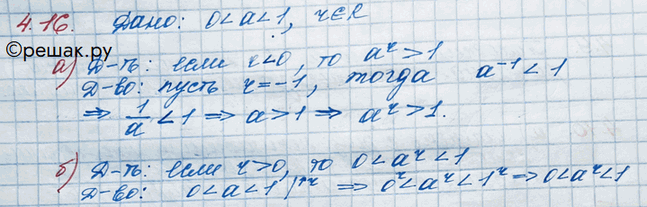 4.16. Дано: 0<a<1, r∈R
©решак.ру
а) Д-ть: если r<0, то aʳ>1
Д-во: пусть r=-1, тогда a⁻¹<1
⇒ 1/a <1 ⇒ a>1 ⇒ aʳ>1.
б) Д-ть: если r>0, то 0<aʳ<1
Д-во: 0<a<1 |↑ʳ ⇒ 0ʳ<aʳ<1ʳ ⇒ 0<aʳ<1